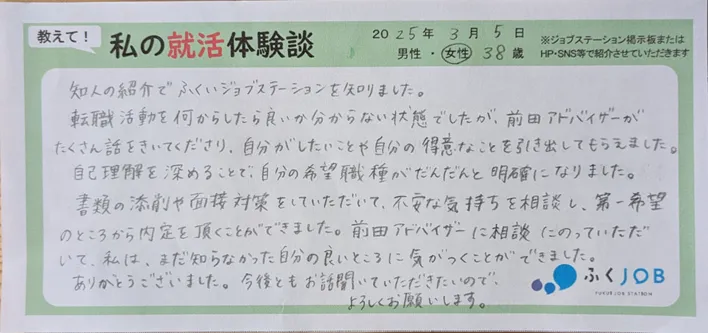 教えて！
私の就活体験談
2025年 3月 5日
男性・女性 38歳
※ジョブステーション掲示板または
HP・SNS等で紹介させていただきます
知人の紹介でふくいジョブステーションを知りました。
転職活動を何からしたら良いか分からない状態でしたが、前田アドバイザーが
たくさん話をきいてくださり、自分がしたいことや自分の得意なことを引き出してもらえました。
自己理解を深めることで、自分の希望職種がだんだんと明確になりました。
書類の添削や面接対策をしていただいて、不安な気持ちを相談し、第一希望
のところから内定を頂くことができました。前田アドバイザーに相談にのっていただ
いて、私は、まだ知らなかった自分の良いところに気がつくことができました。
ありがとうございました。今後ともお話聞いていただきたいので、
よろしくお願いします。
ふくJOB
FUKUI JOB STATION